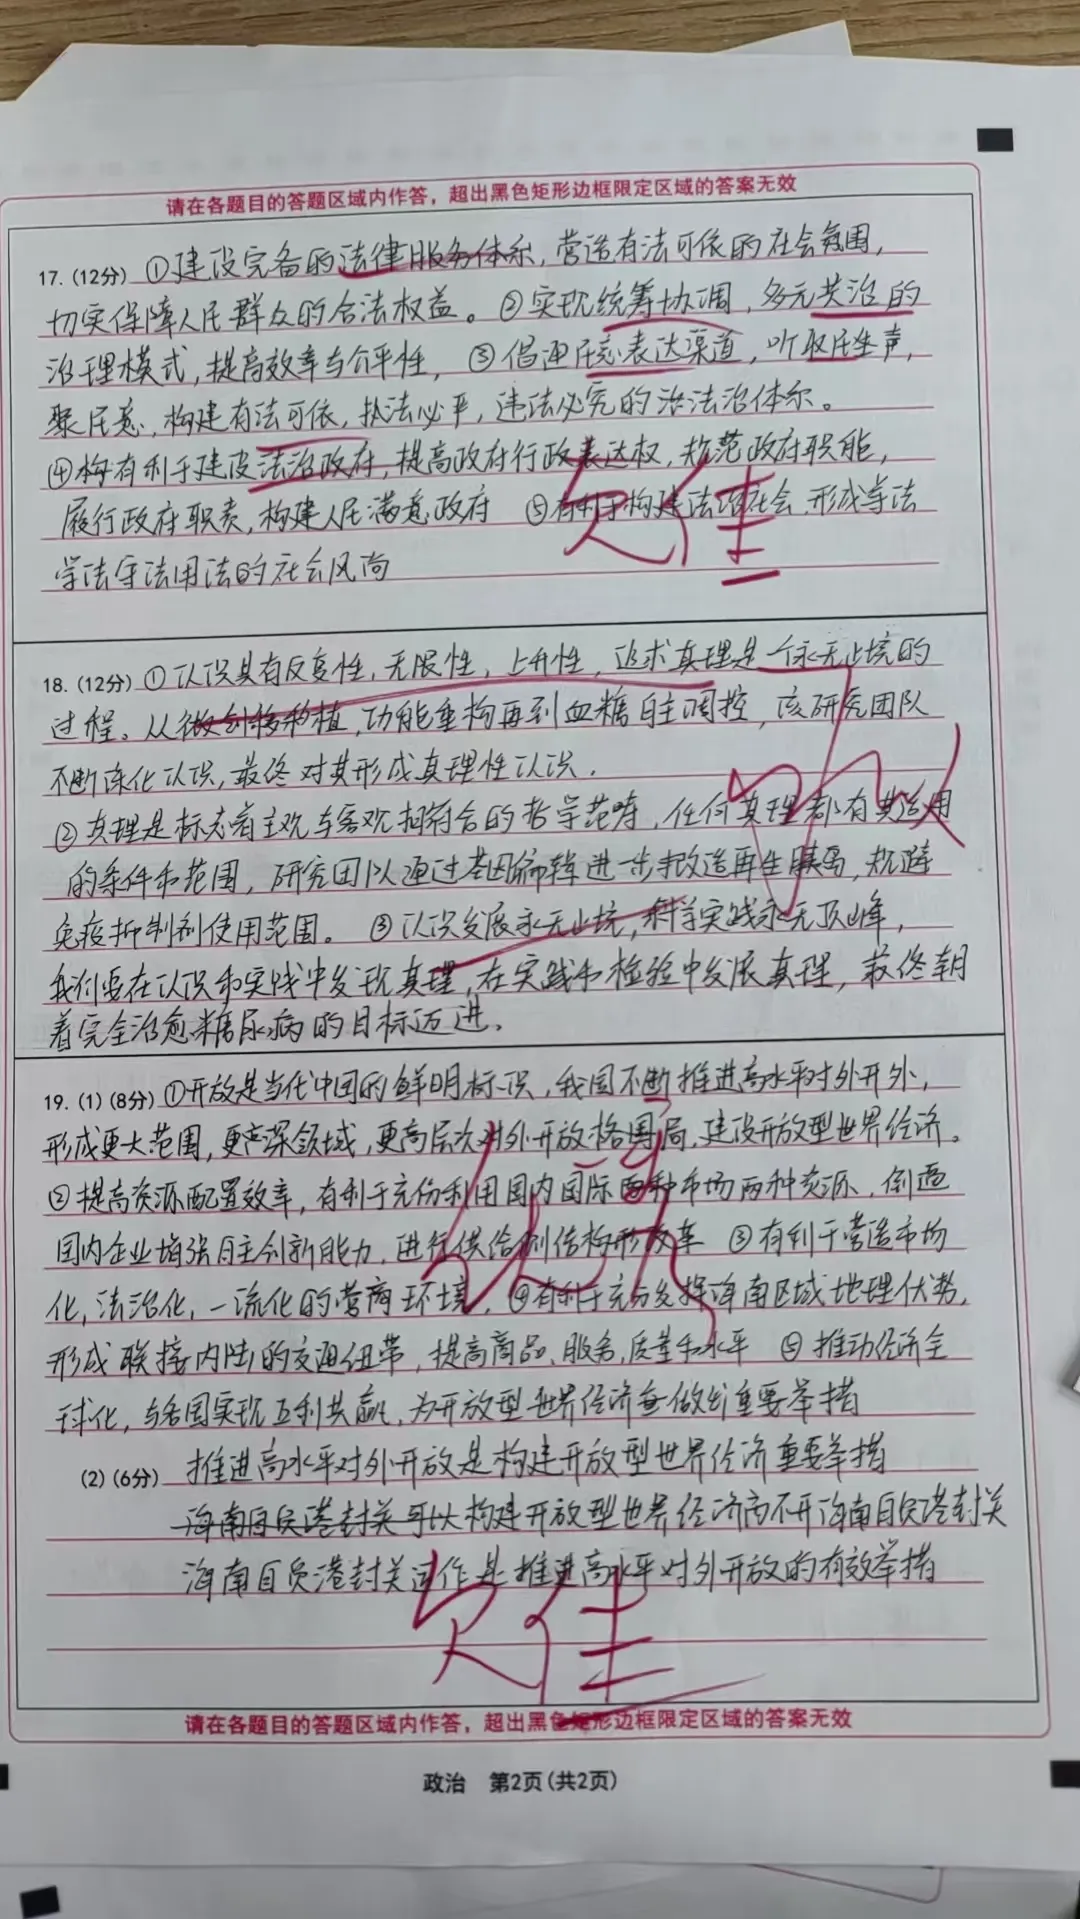 请在各题目的答题区域内作答，超出黑色矩形边框限定区域的答案无效
17. (12分) ①建设完备的法律服务体系，营造有法可依的社会氛围，
切实保障人民群众的合法权益。②实现统筹协调，多元共治的
治理模式，提高效率与公平性，③倡通民意表达渠道，听取民生声，
聚民意，构建有法可依，执法必严，违法必究的法治体系。
④构有利于建设法治政府，提高政府行政表达权，规范政府职能，
履行政府职责，构建人民满意政府 ⑤有利于构建法治社会 形成尊法
学法守法用法的社会风尚
欠佳
18. (12分) ①认识具有反复性，无限性，上升性，追求真理是一个永无止境的
过程。从微创移植，功能重构再到血糖自主调控，该研究团队
不断深化认识，最终对其形成真理性认识．
②真理是标志着主观与客观相符合的哲学范畴，任何真理都有其适用
的条件和范围，研究团队通过基因编辑进一步改造再生胰岛，规避
免疫抑制剂使用范围。 ③认识发展永无止境，科学实践永无顶峰，
我们要在认识和实践中发现真理，在实践和检验中发展真理，最终朝
着完全治愈糖尿病的目标迈进．
19. (1) (8分) ①开放是当代中国的鲜明标识，我国不断推进高水平对外开外，
形成更大范围，更宽深领域，更高层次对外开放格国局，建设开放型世界经济。
②提高资源配置效率，有利于充份利用国内国际两种市场两种资源，倒逼
国内企业增强自主创新能力，进行供给侧结构形改革 ③有利于营造市场
化，法治化，一流化的营商环境，④有利于充分发挥海南区域地理优势，
形成联接内陆的交通纽带，提高商品、服务，质量和水平 ⑤推动经济全
球化，与各国实现互利共赢，为开放型世界经济做出重要举措
(2) (6分) 推进高水平对外开放是构建开放型世界经济重要举措
海南自贸港封关可以构建开放型世界经济离不开海南自贸港封关
海南自贸港封关运作是推进高水平对外开放的有效举措
欠佳
请在各题目的答题区域内作答，超出黑色矩形边框限定区域的答案无效
政治 第2页(共2页)